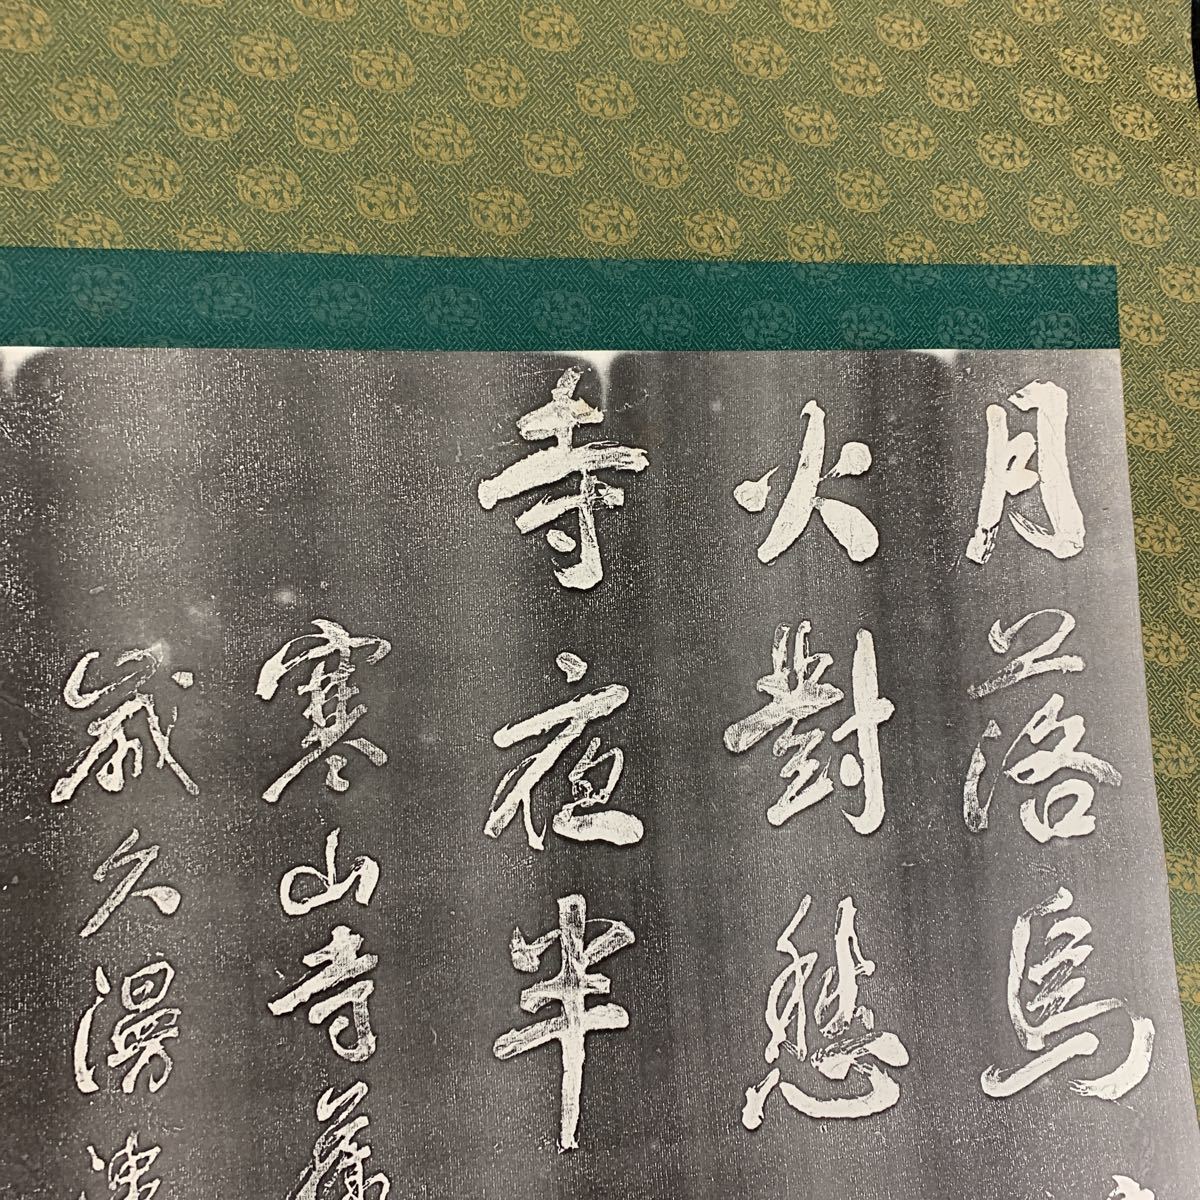 月落烏
火對愁
寺夜半
寒山寺舊
歲久漫